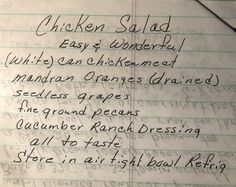 Chicken Salad
Easy & Wonderful
(White) can chicken meat
mandran Oranges (drained)
seedless grapes
fine ground pecans
Cucumber Ranch Dressing
all to taste
Store in air tight bowl Refrig